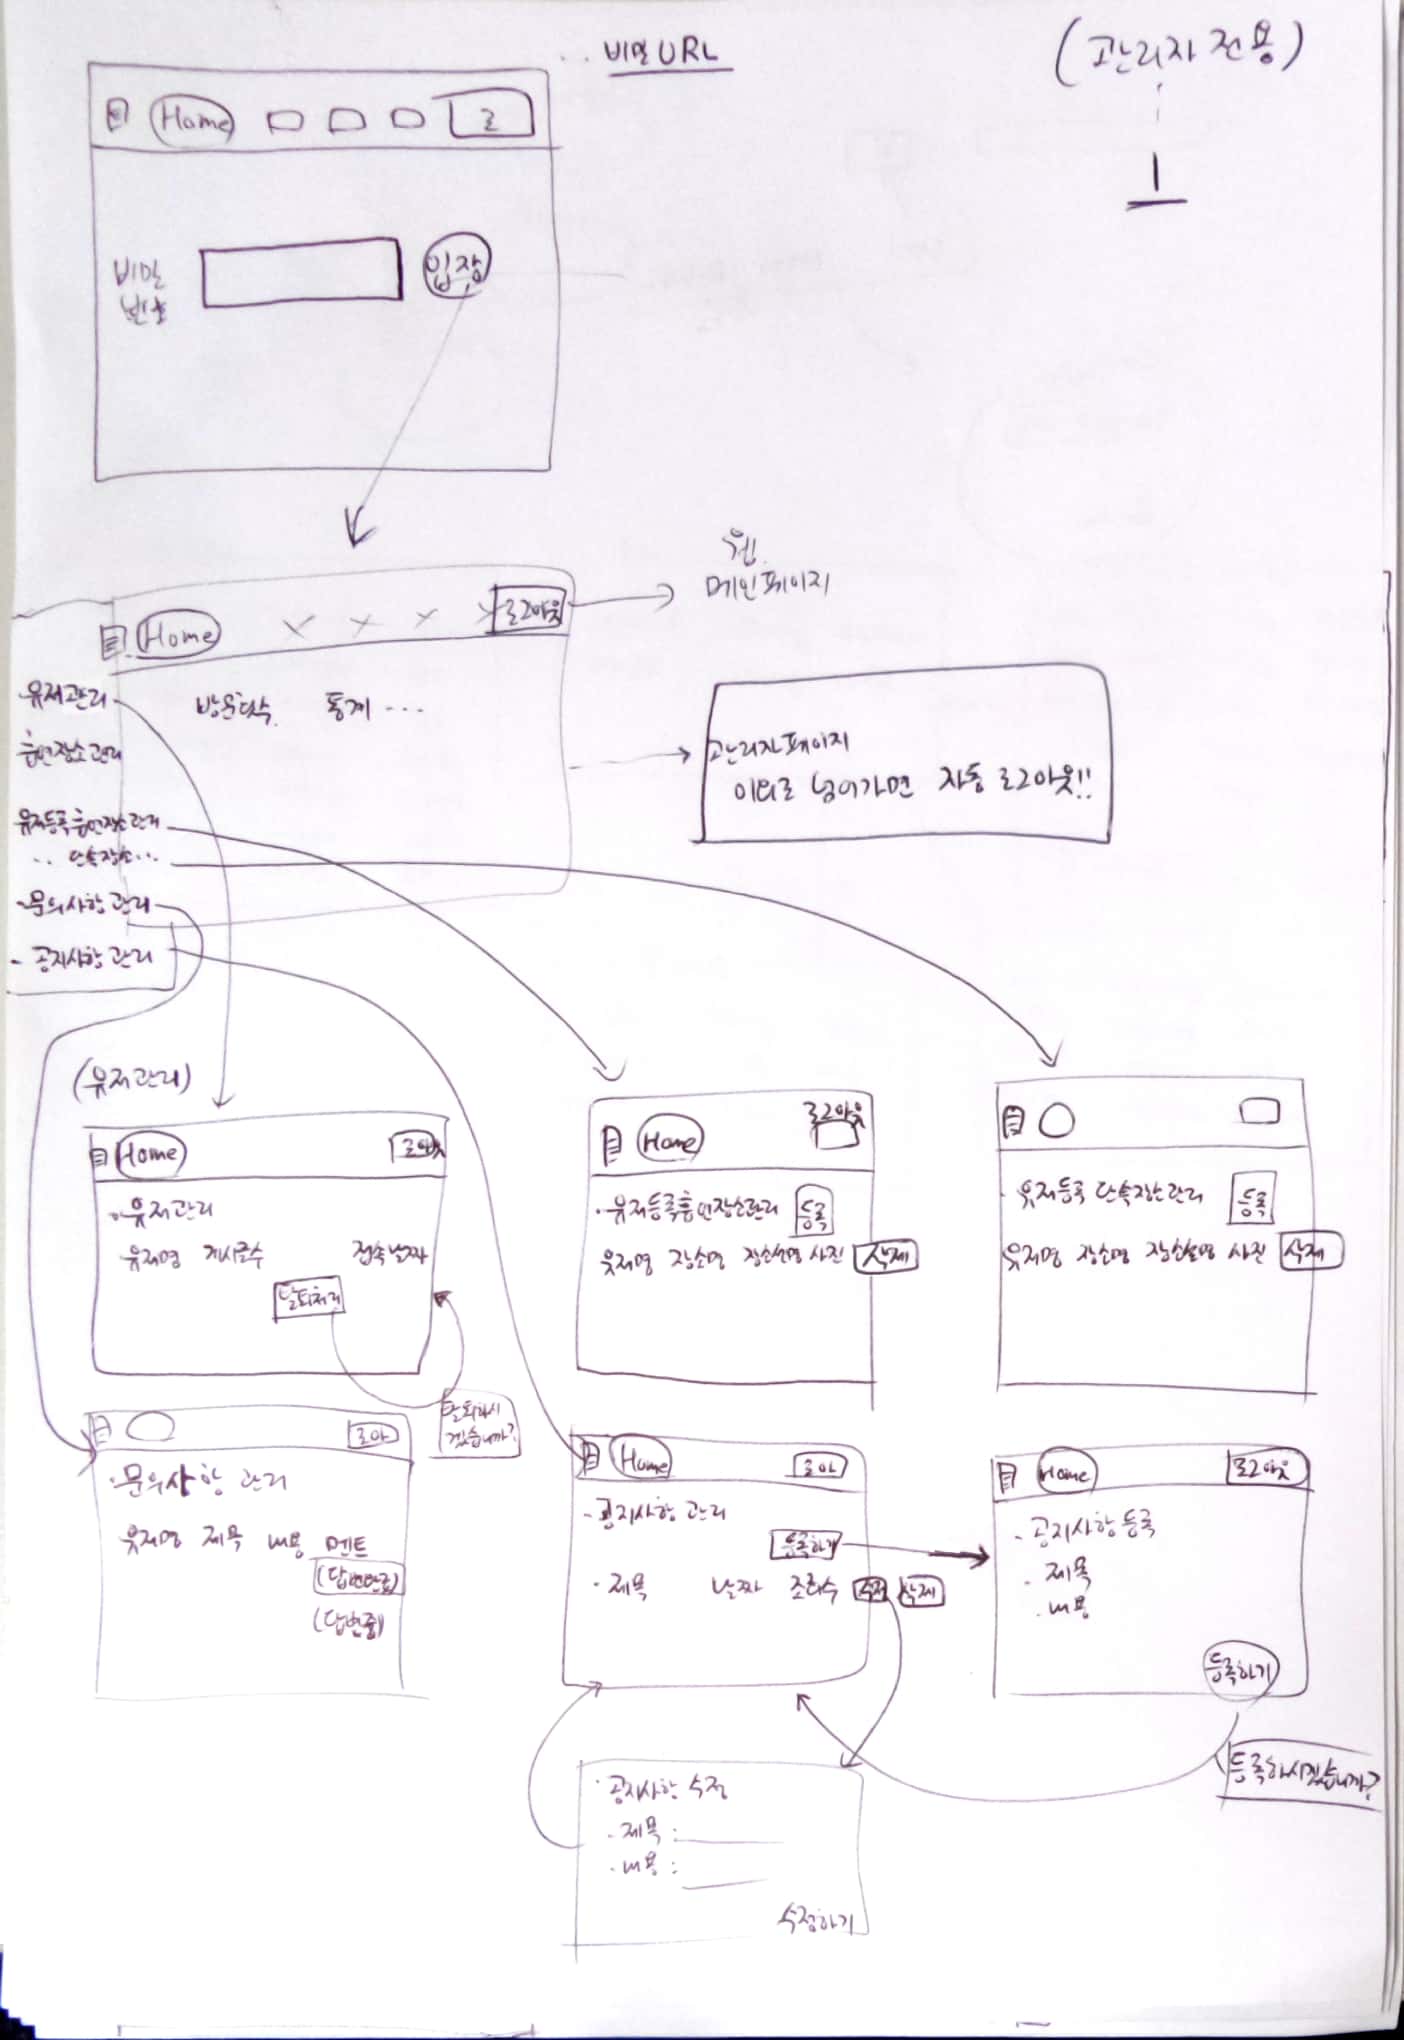 비밀 URL
(관리자 전용)
1
Home
로
비밀
번호
입장
웹
메인페이지
Home
로그아웃
방문자수 통계 ...
관리자페이지
이외로 넘어가면 자동 로그아웃!!
·유저관리
흡연장소관리
유저등록흡연장소관리
.. 단속장소...
-문의사항 관리
- 공지사항 관리
(유저관리)
Home
·유저관리
유저명 게시글수 접속날짜
탈퇴처리
탈퇴하시
겠습니까?
Home
로그아웃
·유저등록흡연장소관리
등록
유저명 장소명 장소설명 사진
삭제
· 유저등록 단속장소관리
등록
유저명 장소명 장소설명 사진
삭제
로아
·문의사항 관리
유저명 제목 내용 멘트
(답변완료)
(답변중)
Home
로아
-공지사항 관리
등록하기
· 제목 날짜 조회수
수정
삭제
Home
로그아웃
- 공지사항 등록
. 제목
. 내용
등록하기
등록하시겠습니까?
· 공지사항 수정
. 제목 :
. 내용 :
수정하기